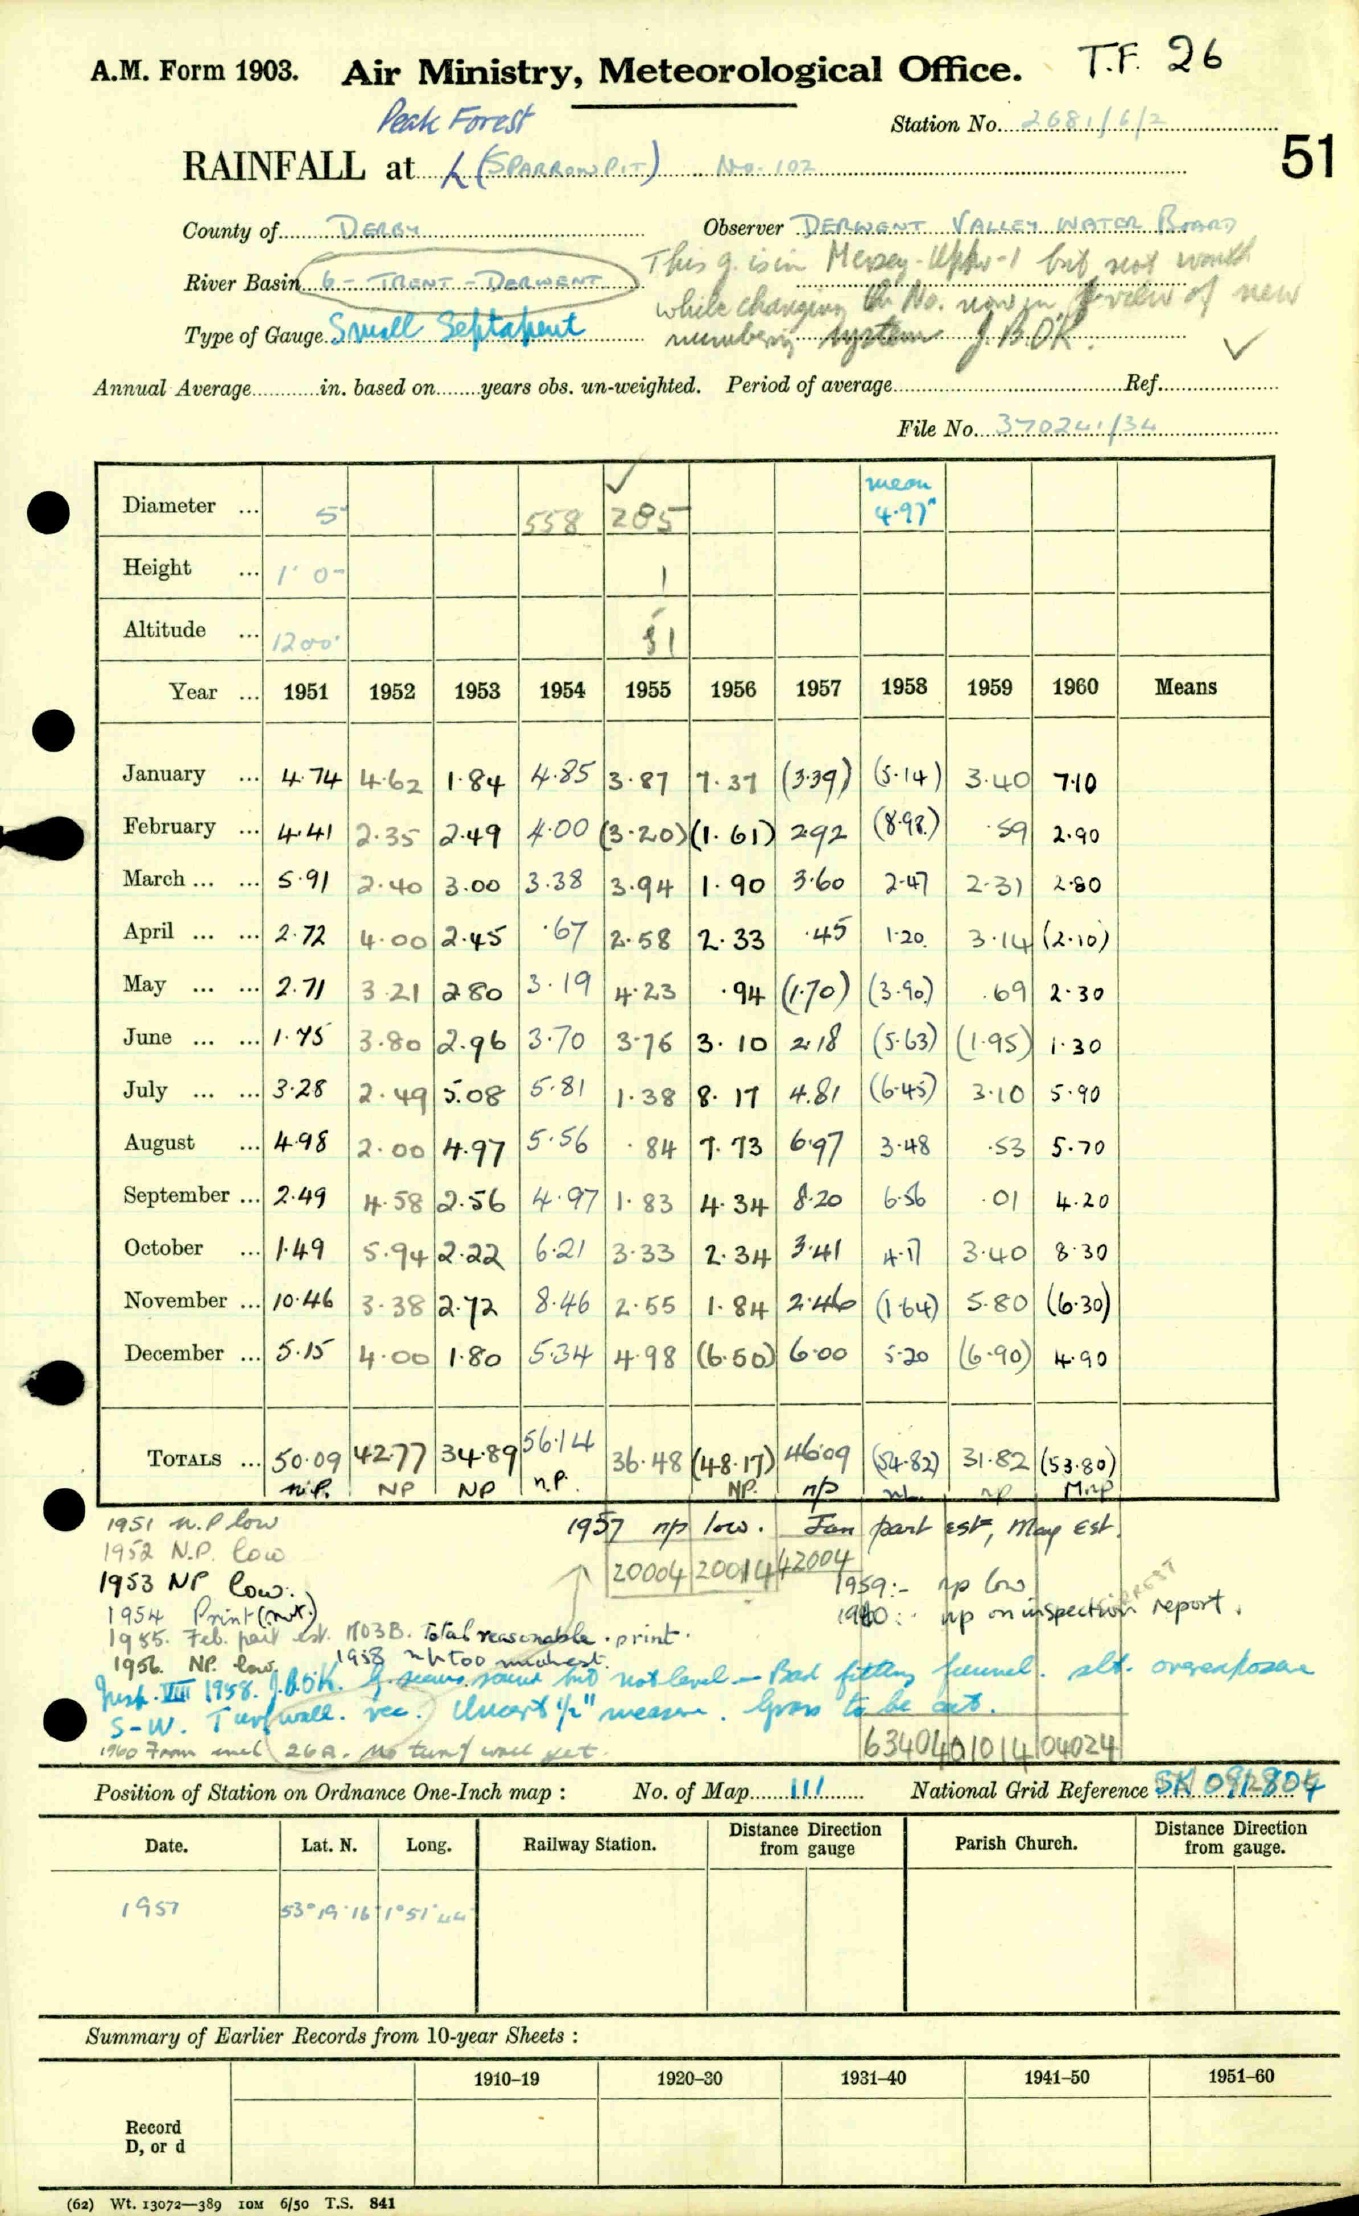 A.M. Form 1903. Air Ministry, Meteorological Office. T.F. 26
Peak Forest
Station No. 2681/6/2
51
RAINFALL at (SPARROWPIT) No. 102
County of DERBY Observer DERWENT VALLEY WATER BOARD
This g. is in Mersey-Upper-1 but not worth
River Basin 6 - TRENT - DERWENT
while changing the No. now in view of new
Type of Gauge Small Septapent numbering system J.B.OK. ✓
Annual Average in. based on years obs. un-weighted. Period of average Ref.
File No. 370241/34
Diameter ... 5" 558 285 ✓ mean 4.97"
Height ... 1' 0" 1
Altitude ... 1200' 51
Year ... 1951 1952 1953 1954 1955 1956 1957 1958 1959 1960 Means
January ... 4.74 4.62 1.84 4.85 3.87 7.37 (3.39) (5.14) 3.40 7.10
February ... 4.41 2.35 2.49 4.00 (3.20) (1.61) 2.92 (8.98) .59 2.90
March ... ... 5.91 2.40 3.00 3.38 3.94 1.90 3.60 2.47 2.31 2.80
April ... ... 2.72 4.00 2.45 .67 2.58 2.33 .45 1.20 3.14 (2.10)
May ... ... 2.71 3.21 2.80 3.19 4.23 .94 (1.70) (3.90) .69 2.30
June ... ... 1.75 3.80 2.96 3.70 3.76 3.10 2.18 (5.63) (1.95) 1.30
July ... ... 3.28 2.49 5.08 5.81 1.38 8.17 4.81 (6.45) 3.10 5.90
August ... 4.98 2.00 4.97 5.56 .84 7.73 6.97 3.48 .53 5.70
September ... 2.49 4.58 2.56 4.97 1.83 4.34 8.20 6.56 .01 4.20
October ... 1.49 5.94 2.22 6.21 3.33 2.34 3.41 4.17 3.40 8.30
November ... 10.46 3.38 2.72 8.46 2.55 1.84 2.46 (1.64) 5.80 (6.30)
December ... 5.15 4.00 1.80 5.34 4.98 (6.50) 6.00 5.20 (6.90) 4.90
TOTALS ... 50.09 42.77 34.89 56.14 36.48 (48.17) 46.09 (54.82) 31.82 (53.80)
n.P. NP NP n.P. NP. np np
1951 n.P low 1957 np low. Jan part est, May Est.
1952 N.P. low
20004 20014 42004
1953 NP low. 1959:- np low
1954 Print 1960:- np on inspection report.
1955. Feb. part est. M03B. Total reasonable. print.
1956. NP. low 1958
Insp. VIII 1958. J.B.OK. G. seems sound but not level - Bad fitting funnel. slt. overexposure
S-W. Turf wall. rec. Uncert ½" measure. Grass to be cut.
1960 From encl 26A. No turf wall yet. 63404 01014 04024
Position of Station on Ordnance One-Inch map : No. of Map 111 National Grid Reference SK 091804
Date. Lat. N. Long. Railway Station. Distance Direction from gauge Parish Church. Distance Direction from gauge.
1957 53°19'16" 1°51'44"
Summary of Earlier Records from 10-year Sheets :
1910–19 1920–30 1931–40 1941–50 1951–60
Record
D, or d
(62) Wt. 13072—389 10M 6/50 T.S. 841